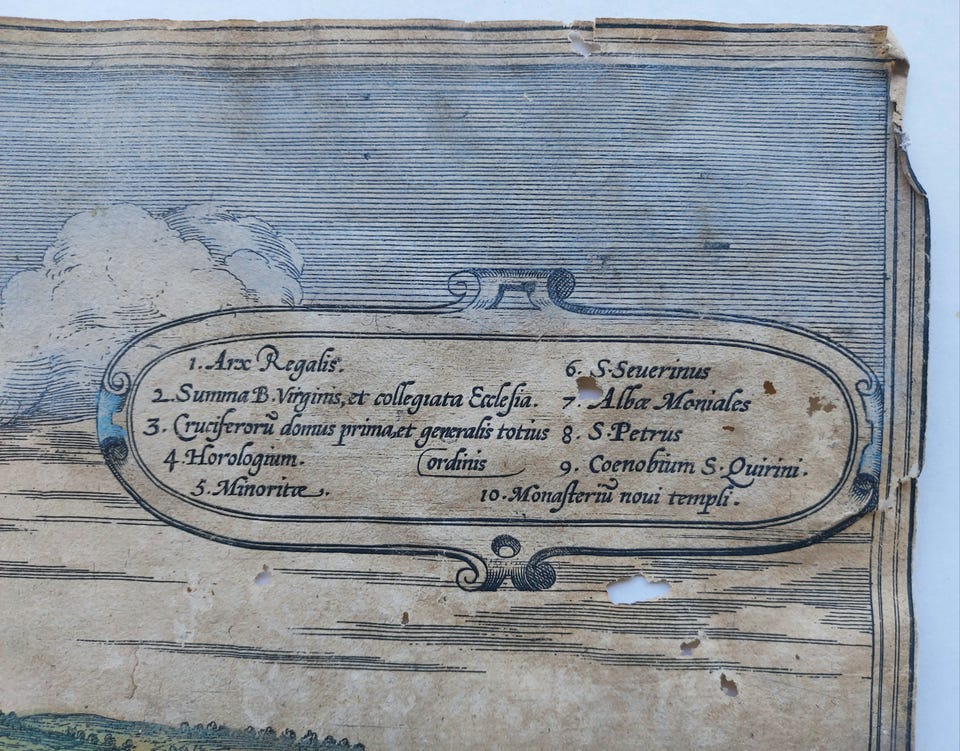 1. Arx Regalis.
2. Summa B. Virginis, et collegiata Ecclesia.
3. Cruciferorū domus prima, et generalis totius
(ordinis
4. Horologium.
5. Minoritæ.
6. S. Seuerinus
7. Albæ Moniales
8. S. Petrus
9. Coenobium S. Quirini.
10. Monasteriū noui templi.